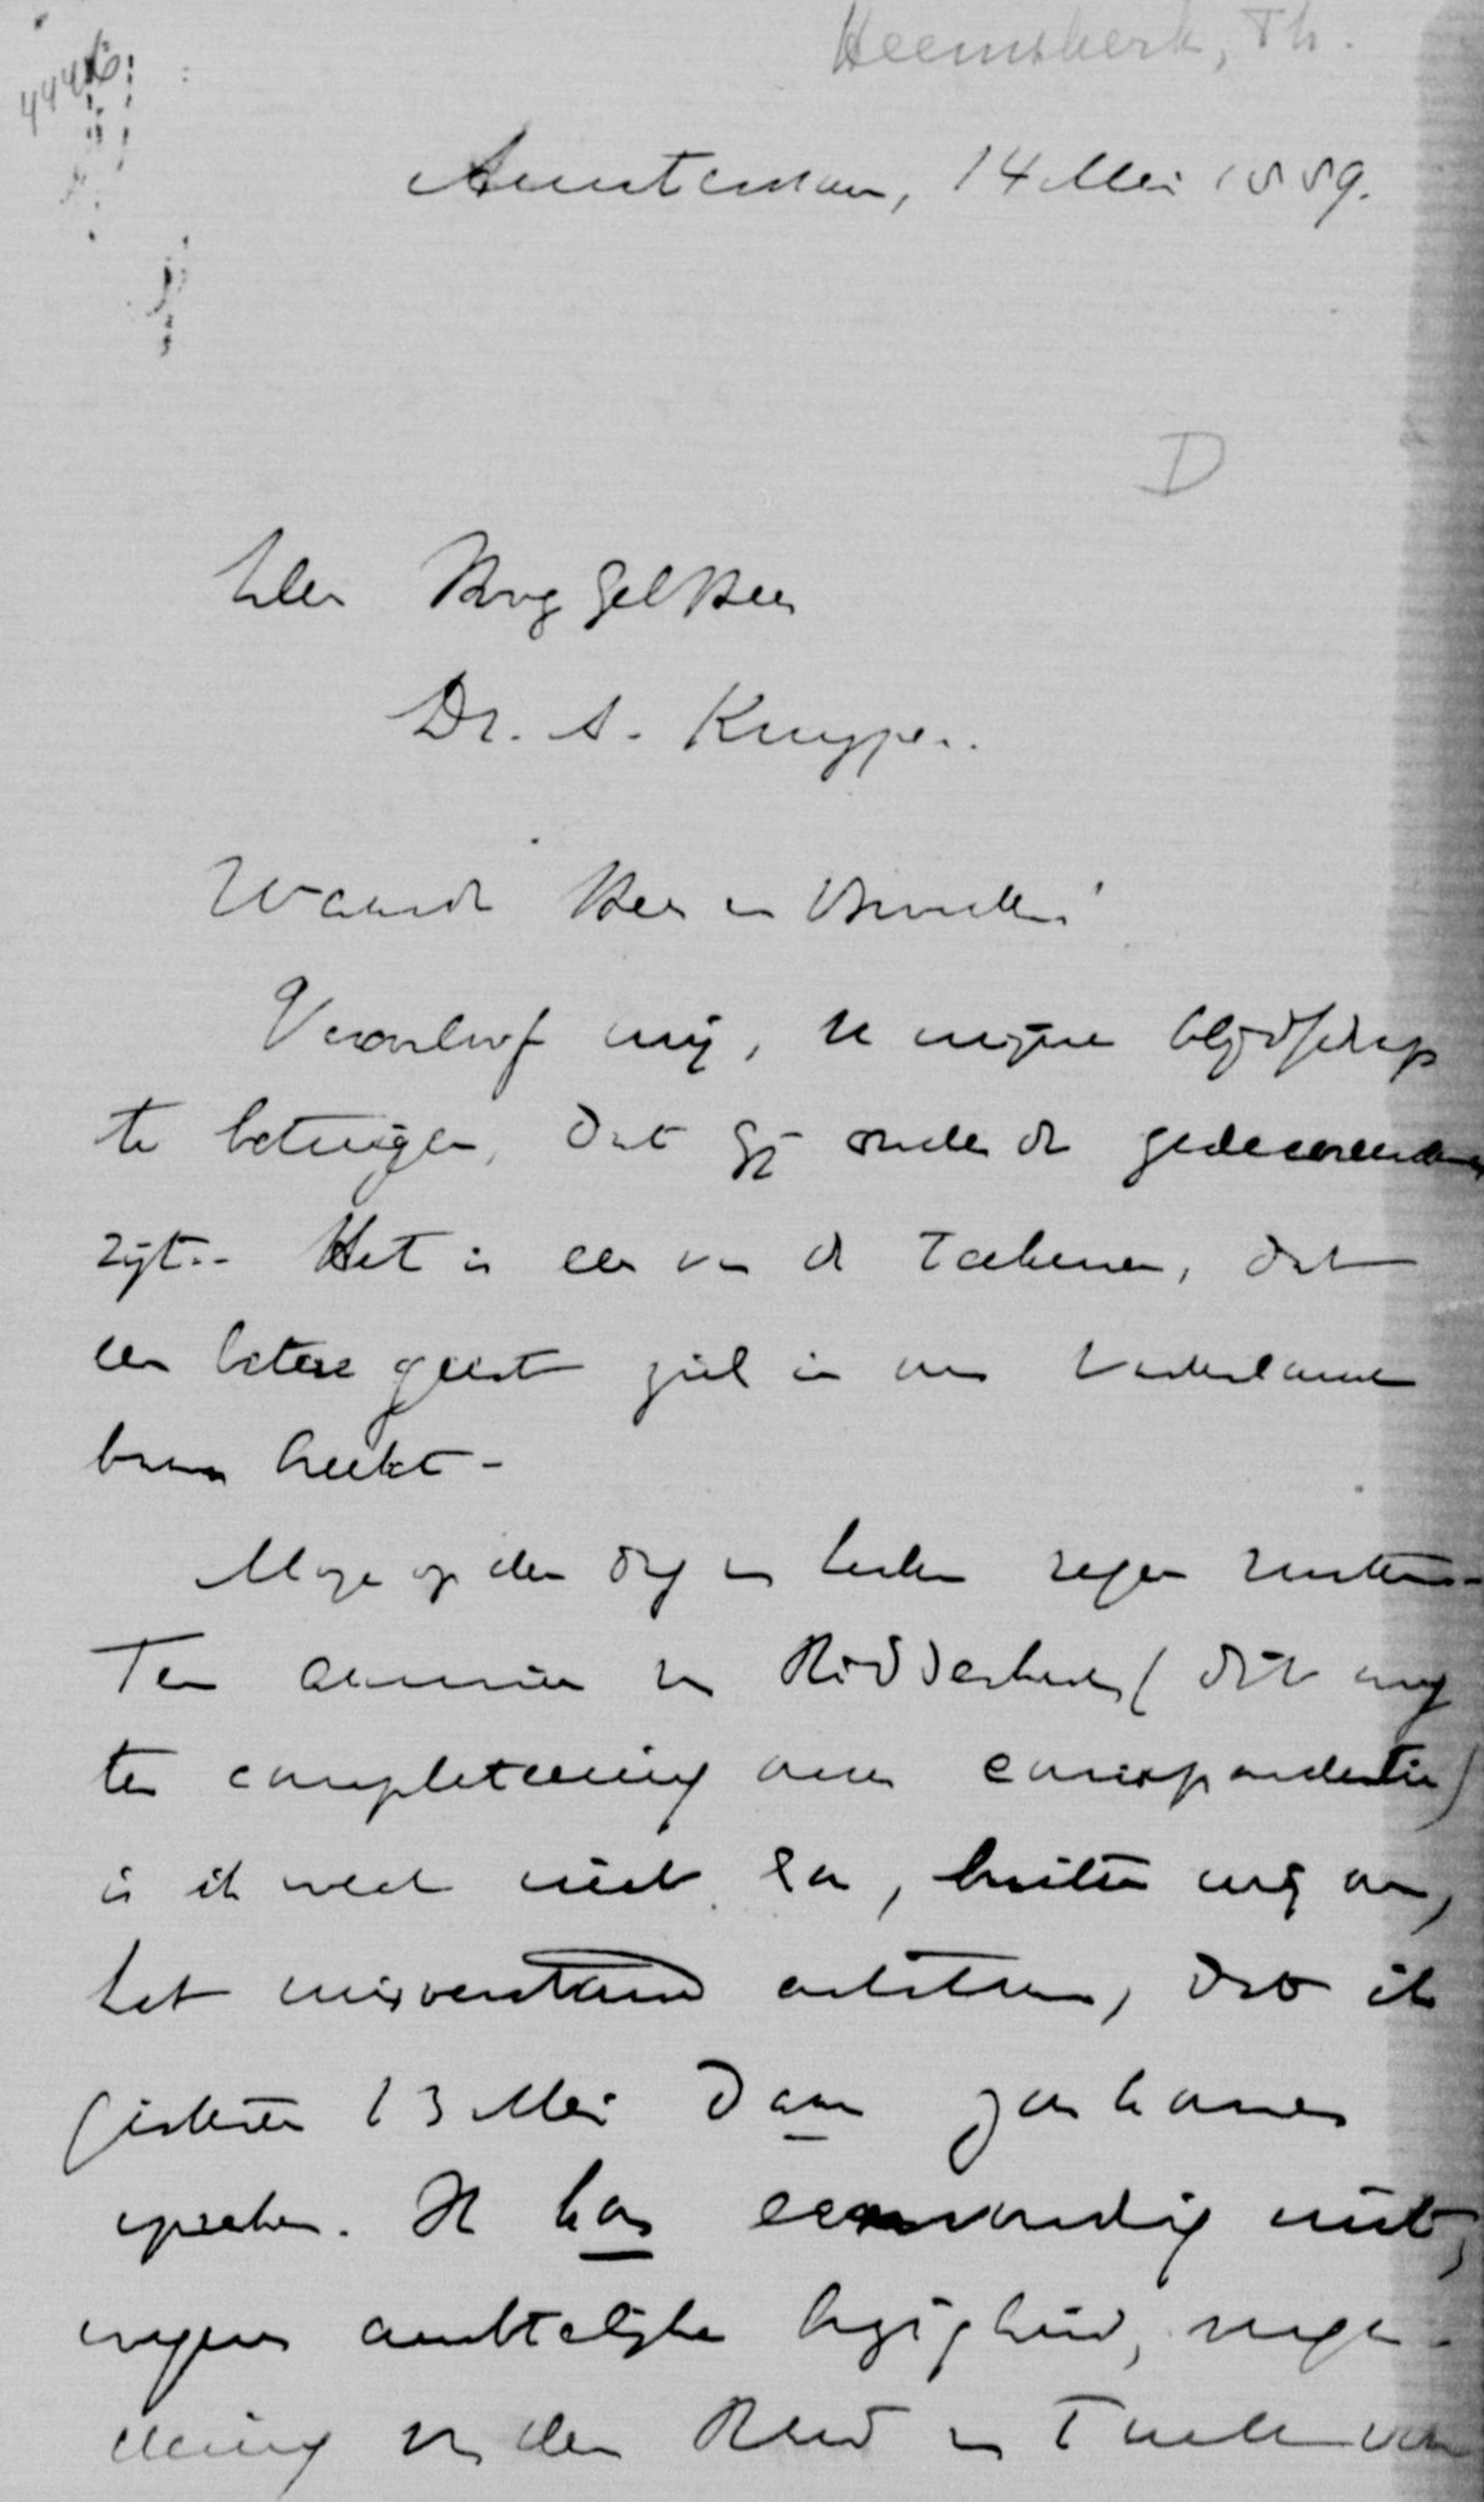 Heemskerk, Th.
Amsterdam, 14 Mei 1889.
D
Den HoogGelHeer
Dr. A. Kuyper.
Waarde Heer en Vriend!
Veroorloof mij, u mijne blijdschap
te betuigen, dat gij onder de gedecoreerden
zijt. - Het is een van de teekenen, dat
een betere geest zich in ons Vaderland
baan breekt -
Moge op den dag van heden zegen rusten -
Ten aanzien van Ridderkerk (dit nog
ter completeering onzer correspondentie)
is ik weet niet hoe, buiten mij om,
het misverstand ontstaan, dat ik
gisteren 13 Mei daar zou komen
spreken. Ik kon eenvoudig niet,
wegens ambtelijke bezigheid, verga-
dering van den Raad en Tweede van